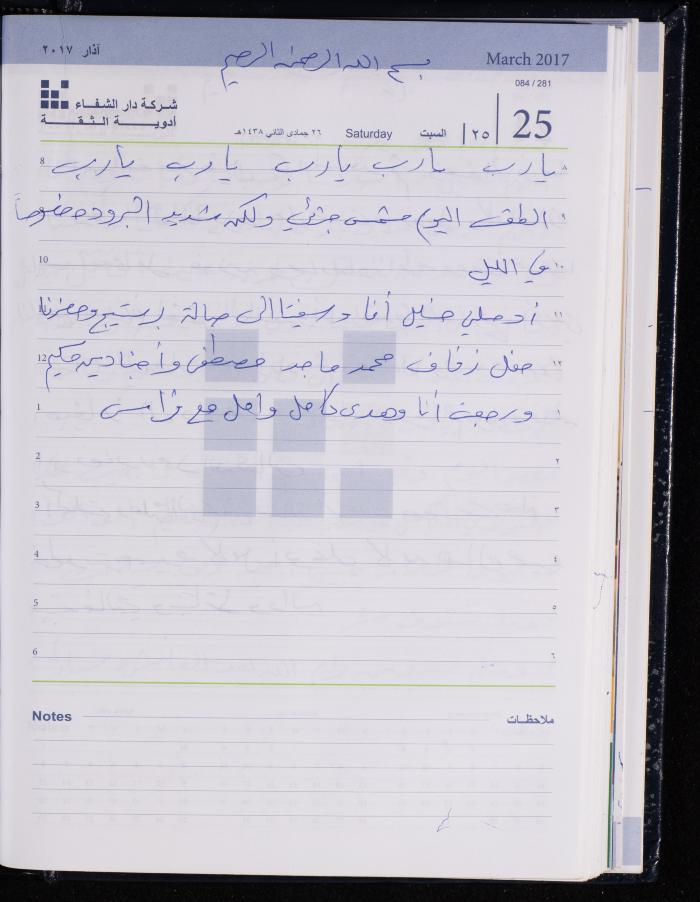 آذار ٢٠١٧
بسم الله الرحمن الرحيم
March 2017
084 / 281
شركة دار الشفاء
أدويــــة الـثـقـة
٢٦ جمادى الثاني ١٤٣٨هـ
Saturday
السبت
٢٥
25
8 يا رب يا رب يا رب يا رب يا رب ٨
الطقس اليوم مشمس جزئي ولكن شديد البرودة خصوصاً ٩
10 في الليل ١٠
11 أوصلني خليل أنا و الى صالة برستيج وحضرنا ١١
12 حفل زفاف محمد ماجد مصطفى وأجنادين حكيم ١٢
1 ورجعت أنا وهدى كامل وامل مع فراس ١
2 ٢
3 ٣
4 ٤
5 ٥
6 ٦
Notes ملاحظـات